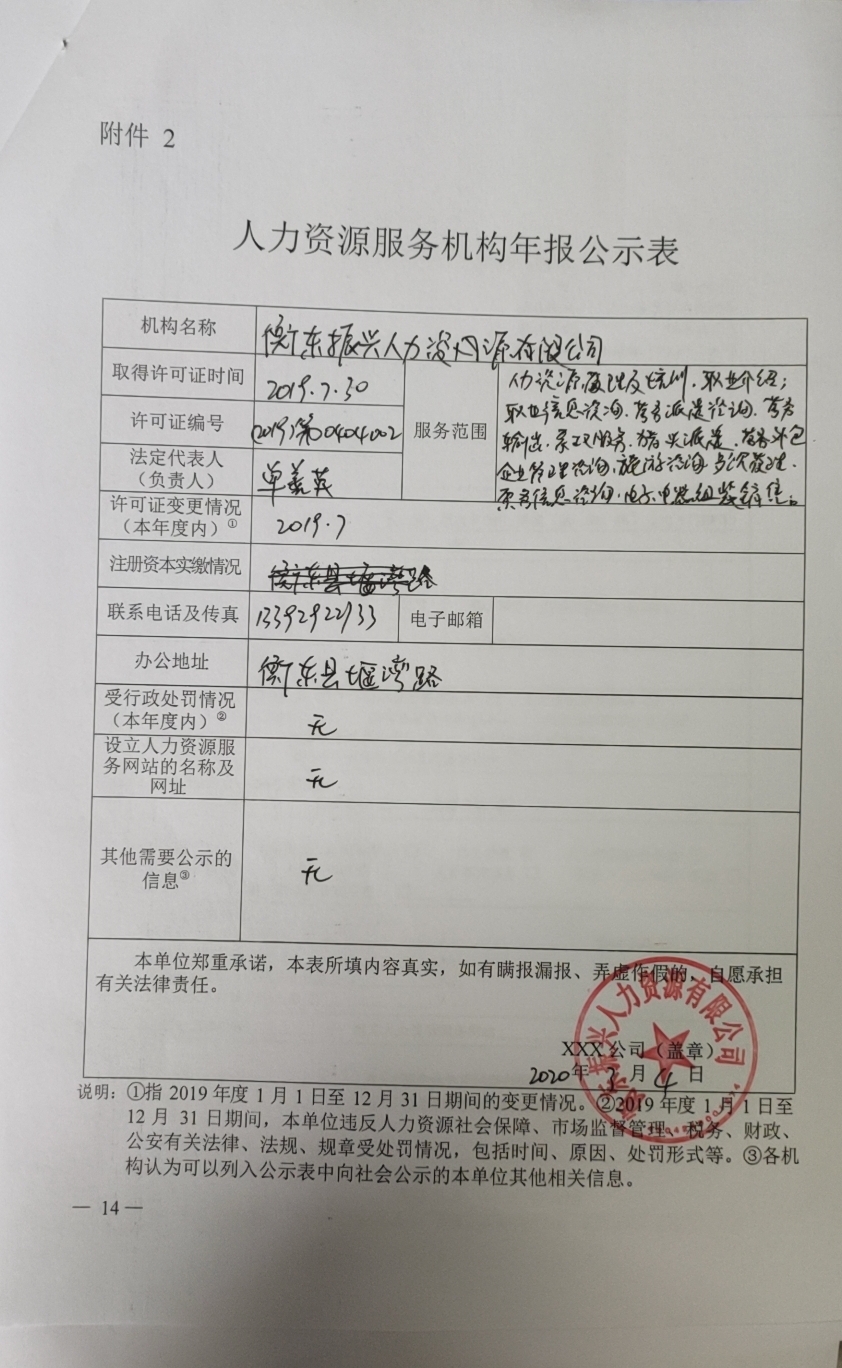 附件 2
人力资源服务机构年报公示表
机构名称
衡东振兴人力资源有限公司
取得许可证时间
2019.7.30
许可证编号
(2019)第0404002
法定代表人
（负责人）
单美英
服务范围
人力资源管理及培训、职业介绍；
职业信息咨询、劳务派遣咨询、劳务
输出、家政服务、猎头派遣、劳务外包
企业管理咨询、旅游咨询
商务信息咨询、电子电器组装销售。
许可证变更情况
（本年度内）①
2019.7
注册资本实缴情况
衡东县堰湾路
联系电话及传真
13392922933
电子邮箱
办公地址
衡东县堰湾路
受行政处罚情况
（本年度内）②
无
设立人力资源服
务网站的名称及
网址
无
其他需要公示的
信息③
无
本单位郑重承诺，本表所填内容真实，如有瞒报漏报、弄虚作假的、自愿承担
有关法律责任。
衡东振兴人力资源有限公司
XXX 公司（盖章）
2020年 3 月 4 日
说明：①指 2019 年度 1 月 1 日至 12 月 31 日期间的变更情况。②2019 年度 1 月 1 日至
12 月 31 日期间，本单位违反人力资源社会保障、市场监督管理、税务、财政、
公安有关法律、法规、规章受处罚情况，包括时间、原因、处罚形式等。③各机
构认为可以列入公示表中向社会公示的本单位其他相关信息。
— 14 —